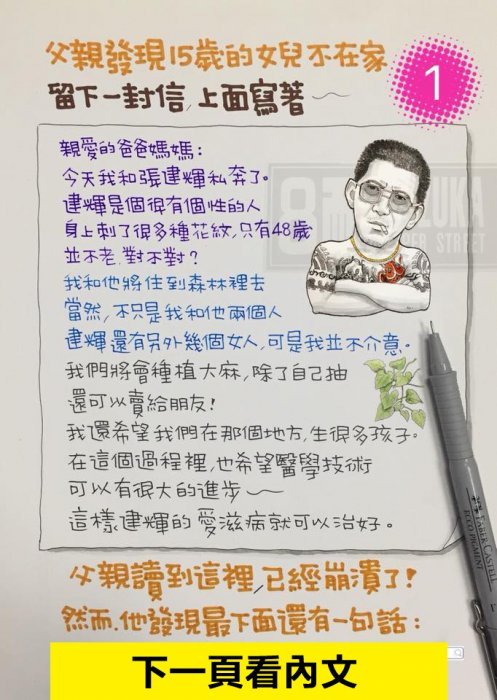 父親發現15歲的女兒不在家
留下一封信，上面寫著～
1
親愛的爸爸媽媽：
今天我和張建輝私奔了。
建輝是個很有個性的人
身上刺了很多種花紋，只有48歲
並不老，對不對？
我和他將住到森林裡去
當然，不只是我和他兩個人
建輝還有另外幾個女人，可是我並不介意。
我們將會種植大麻，除了自己抽
還可以賣給朋友！
我還希望我們在那個地方，生很多孩子。
在這個過程裡，也希望醫學技術
可以有很大的進步～
這樣，建輝的愛滋病就可以治好。
父親讀到這裡，已經崩潰了！
然而，他發現最下面還有一句話：
FABER-CASTELL
ECCO PIGMENT
下一頁看內文